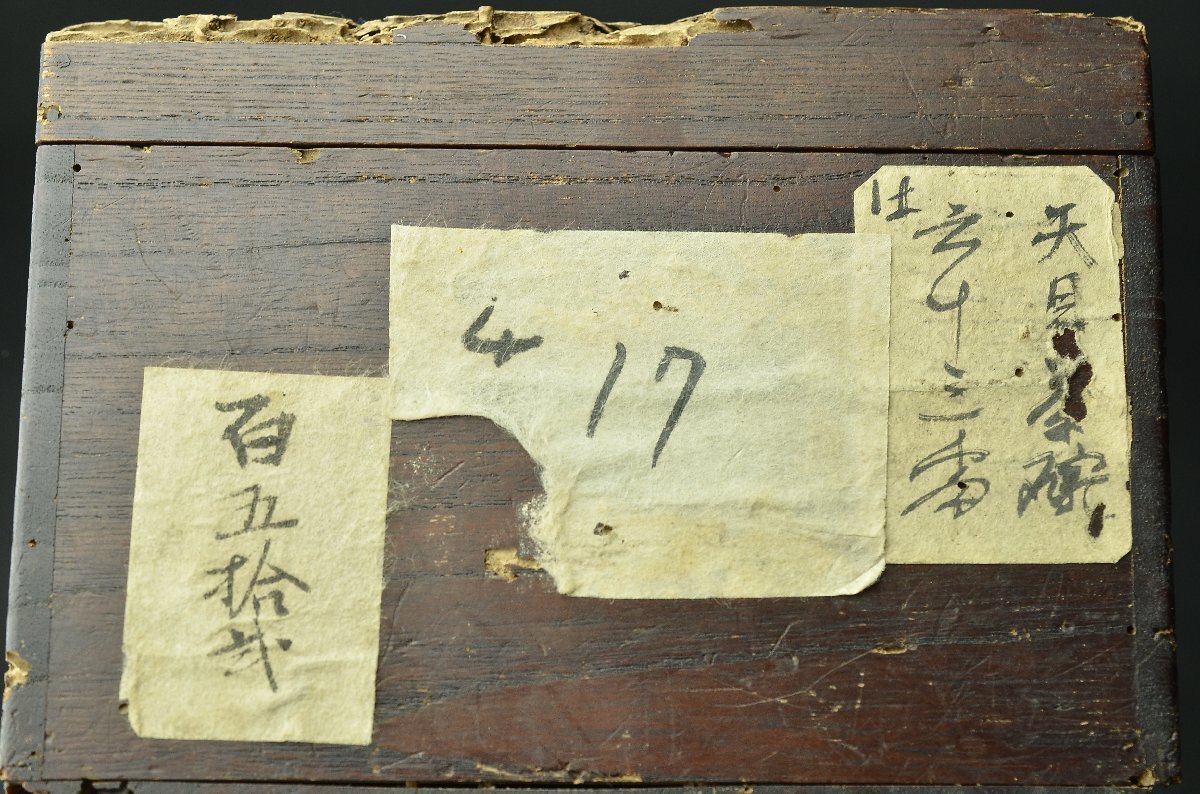 天目茶碗
仕
六十三番
4
17
百五拾弐